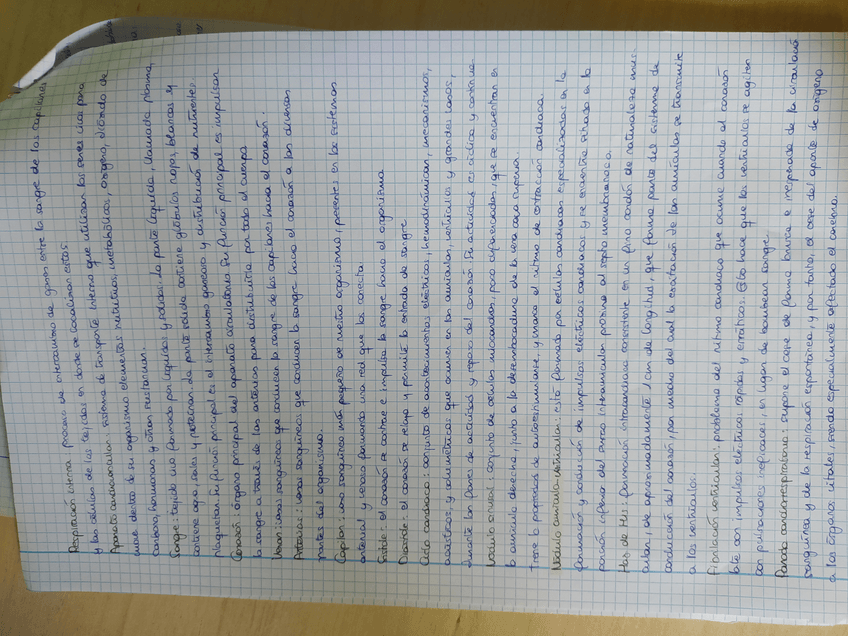 Respiración interna: proceso de intercambio de gases entre la sangre de los capilares
y las células de los tejidos en donde se localizan estos.
Aparato cardiovascular: sistema de transporte interno que utilizan los seres vivos para
mover dentro de su organismo elementos nutritivos, metabolitos, oxígeno, dióxido de
carbono, hormonas y otras sustancias.
Sangre: tejido vivo formado por líquidos y sólidos. La parte líquida, llamada plasma,
contiene agua, sales y proteínas. La parte sólida contiene glóbulos rojos, blancos y
plaquetas. Su función principal es el intercambio gaseoso y distribución de nutrientes.
Corazón: órgano principal del aparato circulatorio. Su función principal es impulsar
la sangre a través de las arterias para distribuirla por todo el cuerpo.
Venas: vasos sanguíneos que conducen la sangre de los capilares hacia el corazón.
Arterias: vasos sanguíneos que conducen la sangre hacia el corazón a las diversas
partes del organismo.
Capilar: vaso sanguíneo más pequeño de nuestro organismo, presente en los sistemas
arterial y venoso formando una red que los conecta.
Sístole: el corazón se contrae e impulsa la sangre hacia el organismo
Diástole: el corazón se relaja y permite la entrada de sangre
Ciclo cardíaco: conjunto de acontecimientos eléctricos, hemodinámicos, mecanismos,
acústicos, y volumétricos que ocurren en las aurículas, ventrículos y grandes vasos,
durante las fases de actividad y reposo del corazón. Su actividad es cíclica y continua.
Nódulo sinusal: conjunto de células miocardiacas, poco diferenciadas, que se encuentran en
la aurícula derecha, junto a la desembocadura de la vena cava superior.
Tiene la propiedad de autoestimularse, y marca el ritmo de contracción cardiaca.
Nódulo aurículo-ventricular: está formado por células cardiacas especializadas en la
formación y conducción de impulsos eléctricos cardiacos y se encuentra situado en la
porción inferior del surco interauricular próximo al septo membranoso.
Haz de His: formación intracardíaca consistente en un fino cordón de naturaleza mus-
cular, de aproximadamente 1 cm de longitud, que forma parte del sistema de
conducción del corazón, por medio del cual la excitación de las aurículas se transmite
a los ventrículos.
Fibrilación ventricular: problema del ritmo cardíaco que ocurre cuando el corazón
late con impulsos eléctricos rápidos y erráticos. Esto hace que los ventrículos se agiten
con pulsaciones ineficaces, en lugar de bombear sangre.
Parada cardiorrespiratoria: supone el cese de forma brusca e inesperada de la circulación
sanguínea y de la respiración espontánea, y por tanto, el cese del aporte de oxígeno
a los órganos vitales, siendo especialmente afectado el cerebro.